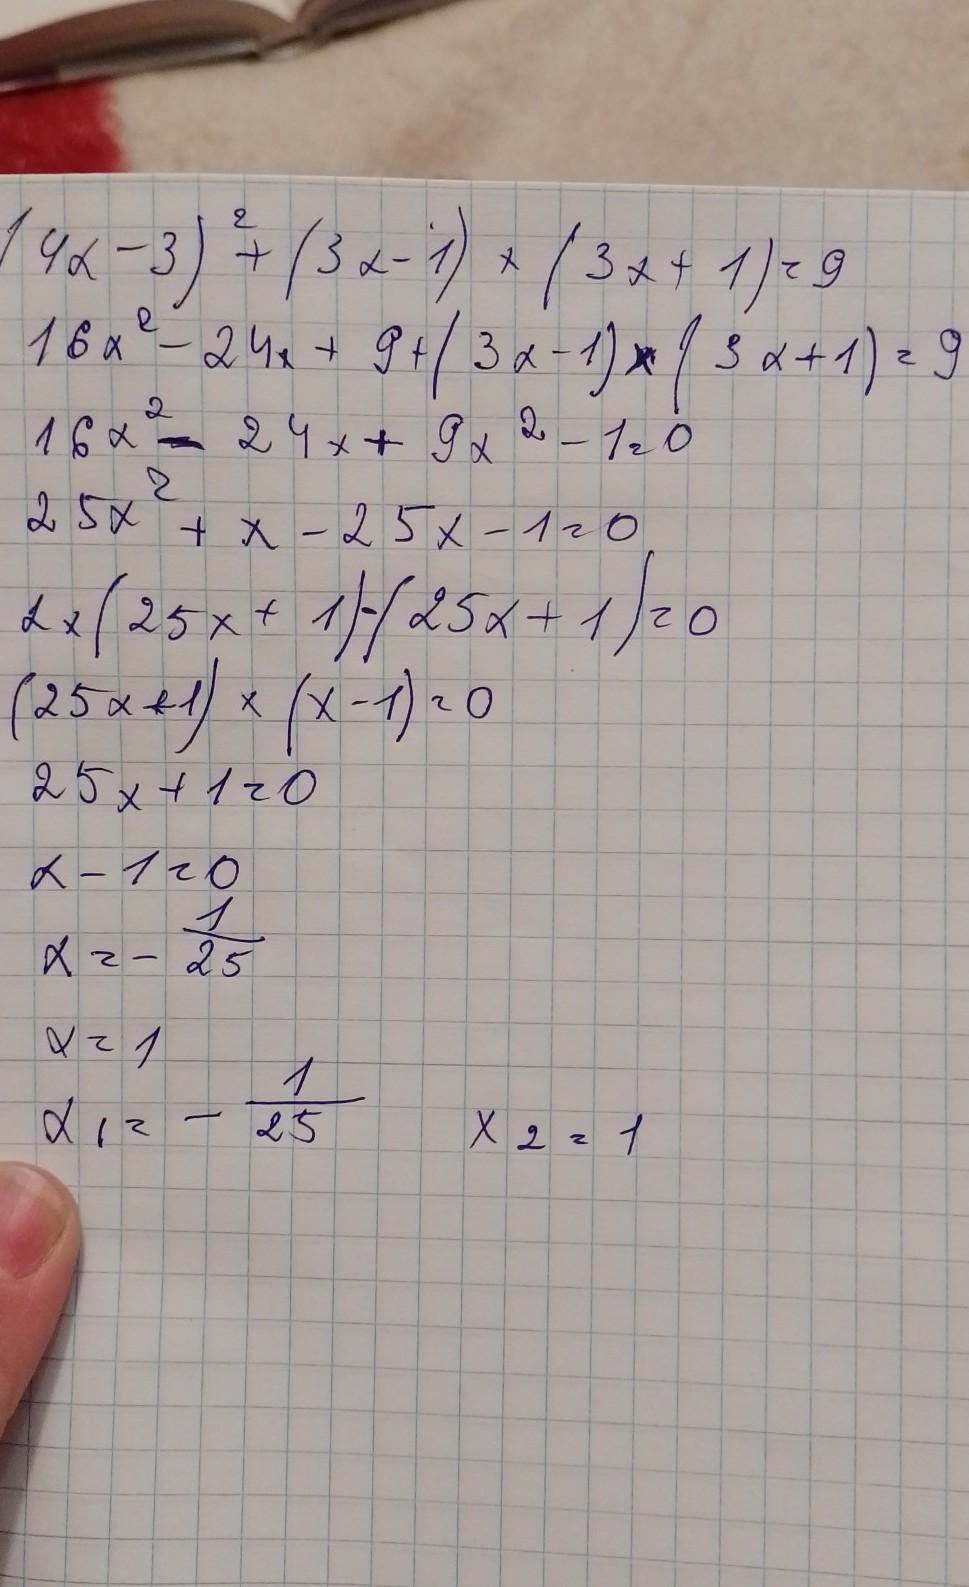 (4x-3)²+(3x-1)×(3x+1)=9
16x²-24x+9+(3x-1)×(3x+1)=9
16x²-24x+9x²-1=0
25x²+x-25x-1=0
x×(25x+1)-(25x+1)=0
(25x+1)×(x-1)=0
25x+1=0
x-1=0
x=-1/25
x=1
x₁=-1/25 x₂=1